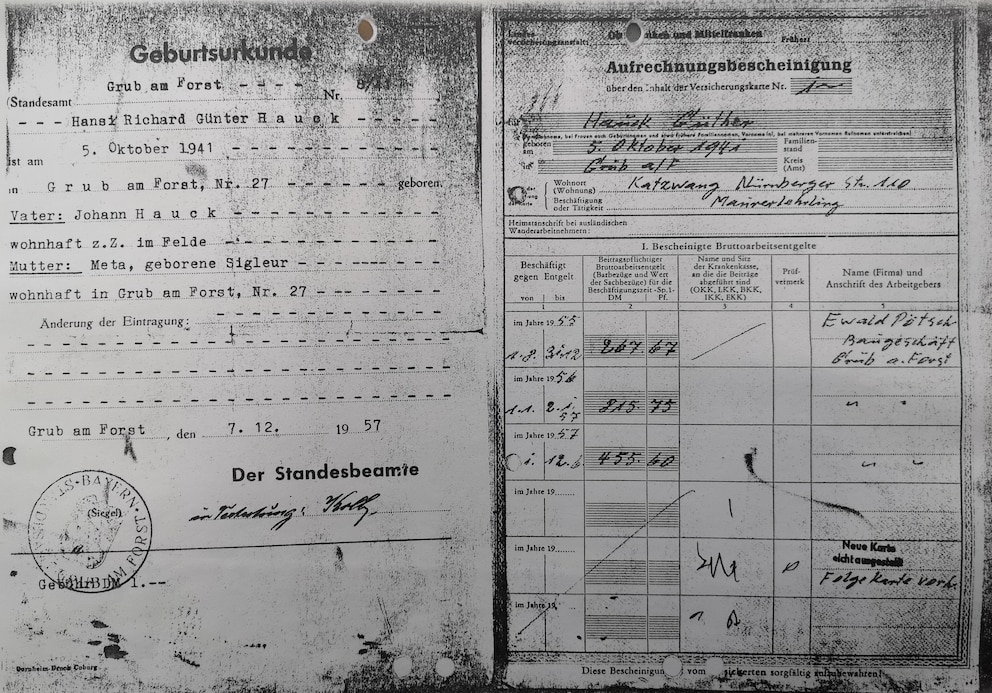 Geburtsurkunde
Standesamt Grub am Forst - - - - Nr.
- - - Hans Richard Günter Hauck - - - - -
ist am 5. Oktober 1941 - - - - - - - - -
in Grub am Forst, Nr. 27 - - - - - - geboren.
Vater: Johann Hauck - - - - - - - - - -
wohnhaft z.Z. im Felde - - - - - - - - - -
Mutter: Meta, geborene Sigleur - - - - - -
wohnhaft in Grub am Forst, Nr. 27 - - - - - -
Änderung der Eintragung: - - - - - - - - - -
Grub am Forst, den 7. 12. 1957
Der Standesbeamte
in Vertretung:
(Siegel)
BAYERN
Gebühr DM 1.--
Dornheim-Druck Coburg
Landesversicherungsanstalt: und Mittelfranken Früher:
Aufrechnungsbescheinigung
über den Inhalt der Versicherungskarte Nr. 1
für Hauck Günther
geboren am 5. Oktober 1941 Familienstand
in Grub a/F Kreis (Amt)
Wohnort (Wohnung) Katzwang Nürnberger Str. 110
Beschäftigung oder Tätigkeit Maurerlehrling
Heimatanschrift bei ausländischen
Wanderarbeitnehmern:
I. Bescheinigte Bruttoarbeitsentgelte
Beschäftigt gegen Entgelt
von | bis
1
Beitragspflichtiger Bruttoarbeitsentgelt (Barbezüge und Wert der Sachbezüge) für die Beschäftigungszeit -Sp.1-
DM Pf.
2
Name und Sitz der Krankenkasse, an die die Beiträge abgeführt sind (OKK, LKK, BKK, IKK, EKK)
3
Prüfvermerk
4
Name (Firma) und Anschrift des Arbeitgebers
5
im Jahre 1955
1.8. 31.12 267 67
Ewald Pötsch
Baugeschäft
Grub a. Forst
im Jahre 1956
1.1. 2.1. 57 815 75 " "
im Jahre 1957
12.6 455 60 " "
im Jahre 19
im Jahre 19
Neue Karte
nicht ausgestellt
Folgekarte vorh.
im Jahre 19
Diese Bescheinigung vom Versicherten sorgfältig aufzubewahren!